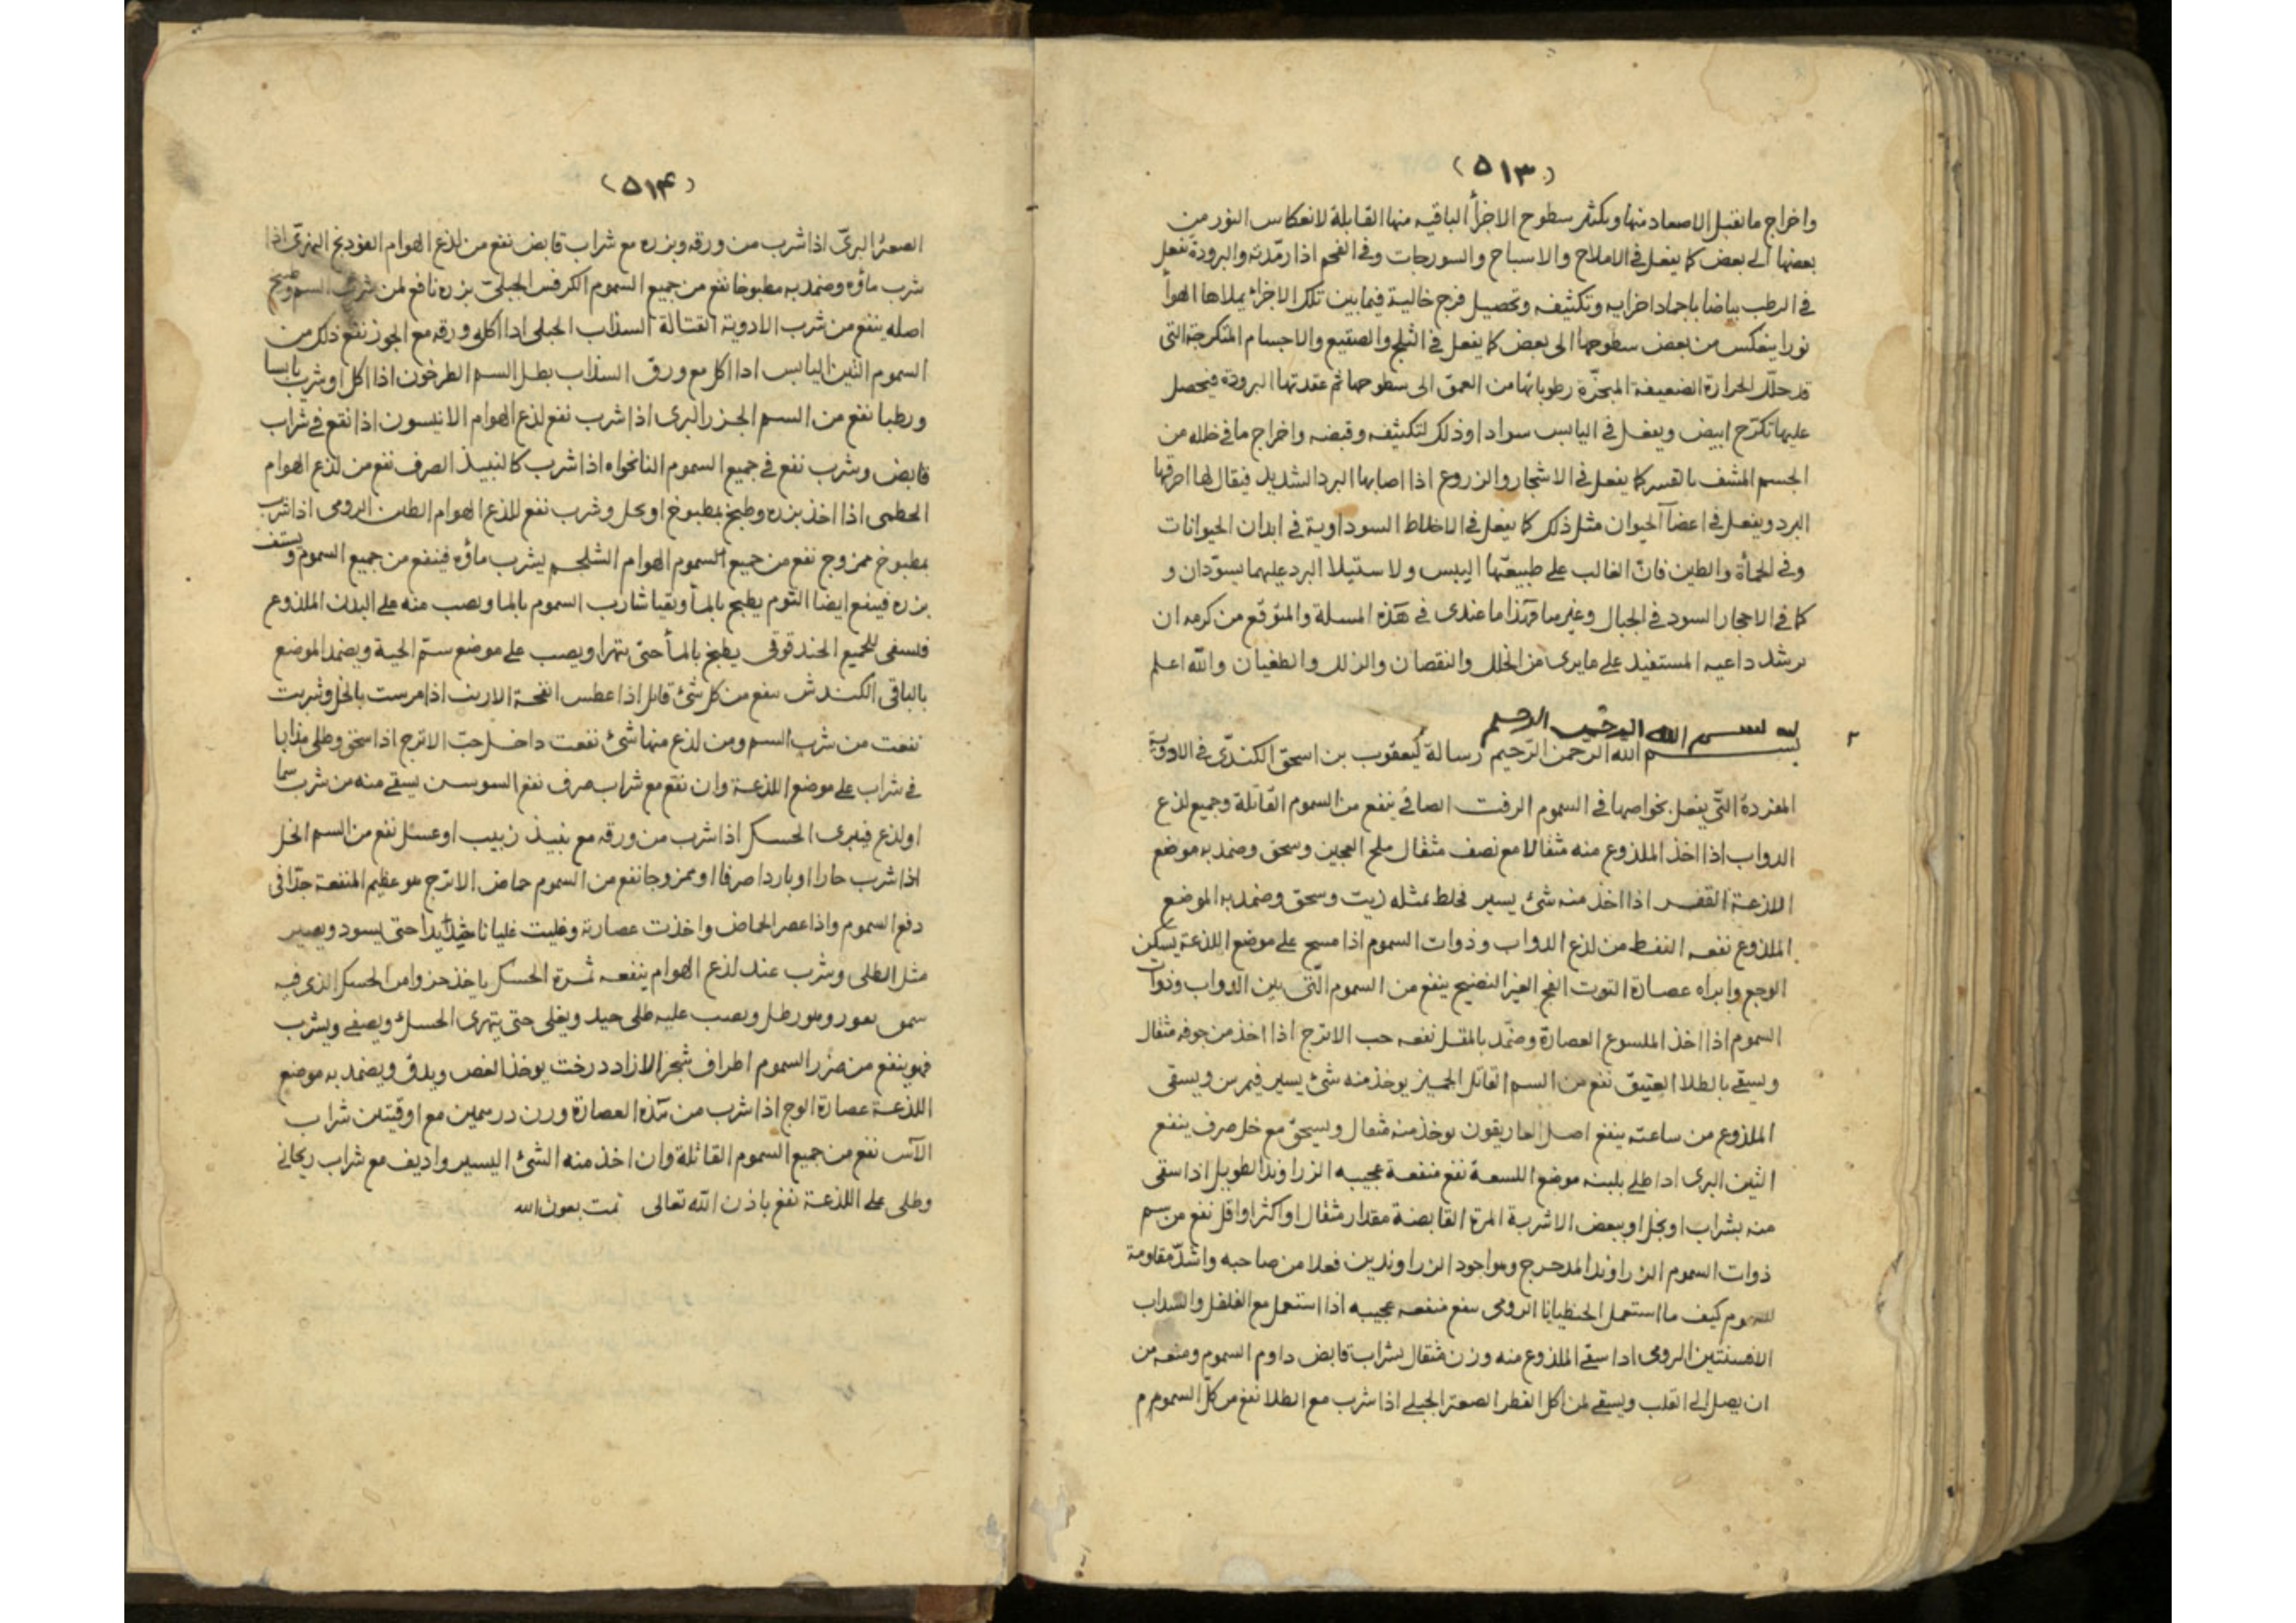 (٥١٣)
واخراج ما يقبل الاصعاد منها ويكثر سطوح الاجزأ الباقيه منها القابلة لانعكاس النور من
بعضها الى بعض كما يفعل فى الاملاح والاسباخ والسورجات وفى الفحم اذا رمّدته والبرودة تفعل
فى الرطب بياضا باجماد اجزايه وتكثيفه وتحصيل فرج خالية فيما بين تلك الاجزاء يملاها الهوأ
نورا ينعكس من بعض سطوحها الى بعض كما يفعل فى الثلج والصقيع والاجسام المتكرجة التى
قد حلّلت الحرارة الضعيفة المبخّرة رطوباتها من العمق الى سطوحها ثم عقدتها البرودة فيحصل
عليها تكرّج ابيض ويفعل فى اليابس سوادا وذلك لتكثيفه وقبضه واخراج ما فى خلله من
الجسم المشف بالقسر كما يفعل فى الاشجار والزروع اذا اصابها البرد الشديد فيقال لها احرقها
البرد ويفعل فى اعضآ الحيوان مثل ذلك كما يفعل فى الاخلاط السوداوية فى ابدان الحيوانات
وفى الحمأة والطين فانّ الغالب على طبيعتها اليبس ولاستيلا البرد عليهما يسوّدان و
كما فى الاحجار السود فى الجبال وغيرها فهذا ما عندى فى هذه المسلة والمتوقع من كرمه ان
يرشد داعيه المستفيد على ما يرى من الخلل والنقصان والزلل والطغيان والله اعلم
بسم الله الرحمن الرحيم
بسم الله الرحمن الرّحيم رسالة ليعقوب بن اسحق الكندىّ فى الادوية
المفردة التّى يفعل بخواصها فى السموم الزفت الصافى ينفع من السموم القاتلة وجميع لذع
الدواب اذا اخذ الملذوع منه مثقالا مع نصف مثقال ملح العجين وسحق وضمد به موضع
اللذعة القفر اذا اخذ منه شئ يسير فخلط بمثله زيت وسحق وضمد به الموضع
الملذوع نفعه النفط من لذع الدواب وذوات السموم اذا مسح على موضع اللذعة يسكن
الوجع وابراه عصارة التوت الفج الغير النضيج ينفع من السموم التّى بين الدواب وذوات
السموم اذا اخذ الملسوع العصارة وضمّد بالمقل نفعه حب الاترج اذا اخذ من جوفه مثقال
ويسقى بالطلا العتيق نفع من السم القاتل الجميز يوخذ منه شئ يسير فيمرس ويسقى
الملذوع من ساعته ينفع اصل الغاريقون يوخذ منه مثقال ويسحق مع خل صرف ينفع
التين البرى اذا طلى بلبنه موضع اللسعة نفع منفعة عجيبه الزراوند الطويل اذا سقى
منه بشراب او بخل او ببعض الاشربة المرة القابضة مقدار مثقال او اكثر او اقل نفع من سم
ذوات السموم الزراوند المدحرج وهو اجود الزراوندين فعلا من صاحبه واشدّ مقاومة
للسموم كيف ما استعمل الجنطيانا الرومى ينفع منفعه عجيبه اذا استعمل مع الفلفل والسداب
الافسنتين الرومى اذا سقى الملذوع منه وزن مثقال بشراب قابض داوم السموم ومنعه من
ان يصل الى القلب ويسقى لمن اكل الفطر الصعتر الجبلى اذا شرب مع الطلا نفع من كلّ السموم
(٥١۴)
الصعتر البرىّ اذا شرب من ورقه وبزره مع شراب قابض نفع من لذع الهوام الفودنج النهرىّ اذا
شرب ماؤه وضمد به مطبوخا نفع من جميع السموم الكرفس الجبلى بزره نافع لمن شرب السم
اصله ينفع من شرب الادوية القتالة السذاب الجبلى اذا اكل ورقه مع الجوز نفع ذلك من
السموم التين اليابس اذا اكل مع ورق السذاب بطل السم الطرخون اذا اكل او شرب يابسا
ورطبا نفع من السم الجزر البرى اذا شرب نفع لذع الهوام الانيسون اذا نقع فى شراب
قابض وشرب نفع فى جميع السموم النانخواه اذا شرب كالنبيذ الصرف نفع من لذع الهوام
الخطمى اذا اخذ بزره وطبخ بمطبوخ او بخل وشرب نفع للذع الهوام الطين الرومى اذا شرب
بمطبوخ ممزوج نفع من جميع السموم الهوام الشلجم يشرب ماؤه فينفع من جميع السموم ويستف
بزره فينفع ايضا الثوم يطبخ بالمأ ويقيا شارب السموم بالما ويصب منه على البدن الملذوع
فيسقى للجميع الحندقوقى يطبخ بالمأ حتى يتهرا ويصب على موضع ستم الحية ويضمد الموضع
بالباقى الكندش ينفع من كل شئ قاتل اذا عطس انفحة الارنب اذا مرست بالخل وشربت
نفعت من شرب السم ومن لذع منها شئ نفعت داخل حبّ الاترج اذا سحق وطلى مذابا
فى شراب على موضع اللذعة وان نقع مع شراب صرف نفع السوسن يسقى منه من شرب سما
او لذع فيبرى الحسك اذا شرب من ورقه مع نبيذ زبيب او عسل نفع من السم الخل
اذا شرب حارا او باردا صرفا او ممزوجا نفع من السموم حماض الاترج هو عظيم المنفعة جدّا فى
دفع السموم واذا عصر الحماض واخذت عصارة وغليت غليانا شديدا حتى يسود ويصير
مثل الطلى وشرب عند لذع الهوام ينفعه ثمرة الحسك ياخذ جزوا من الحسك الذى فيه
وهو رطل ويصب عليه طلى جيد ويغلى حتى يتهرى الحسك ويصفى ويشرب
فهو ينفع من ضرر السموم اطراف شجر الازاد درخت يوخذ الغض ويدق ويضمد به موضع
اللذعة عصارة الوج اذا شرب من هذه العصارة وزن درهمين مع اوقيتين شراب
الآس نفع من جميع السموم القاتلة وان اخذ منه الشئ اليسير واديف مع شراب ريحانى
وطلى على اللذعة نفع باذن الله تعالى تمت بعون الله